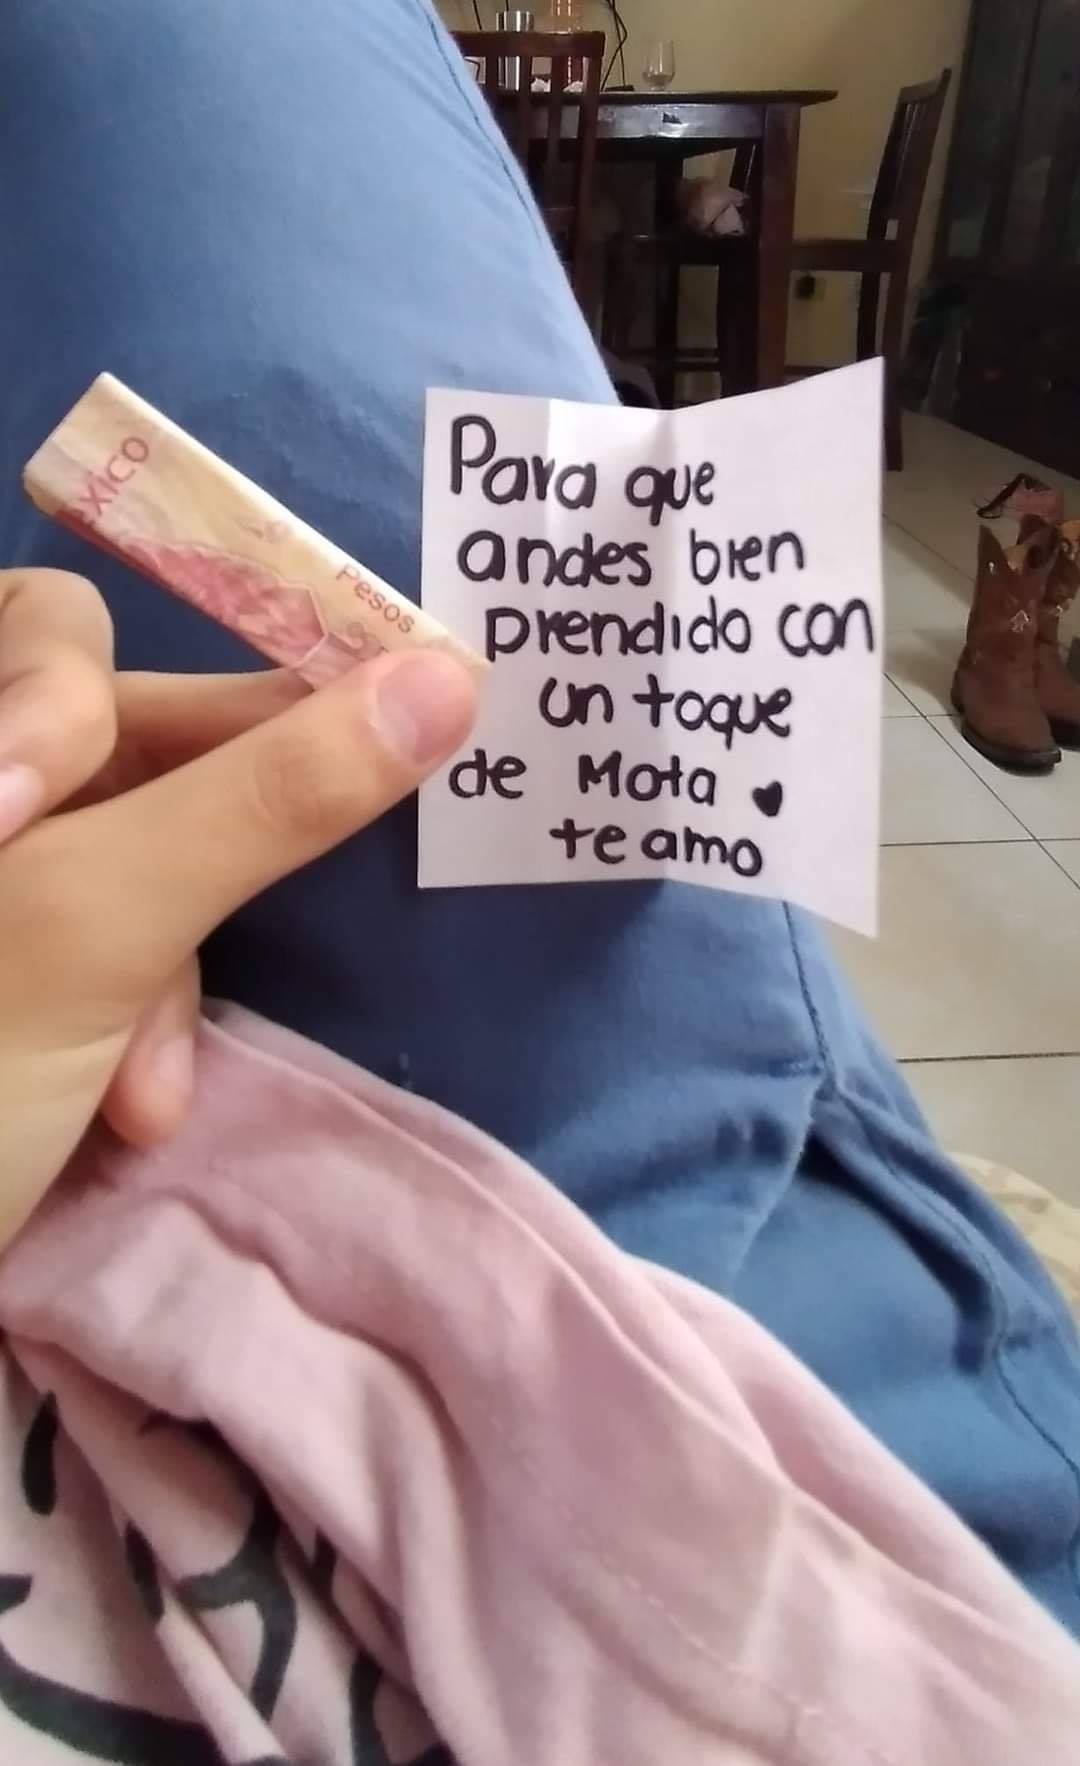 éxico
Pesos
Para que
andes bien
prendido con
un toque
de Mota ♥
te amo